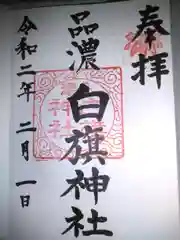 奉拝
品濃
白旗神社
令和二年 二月 一日